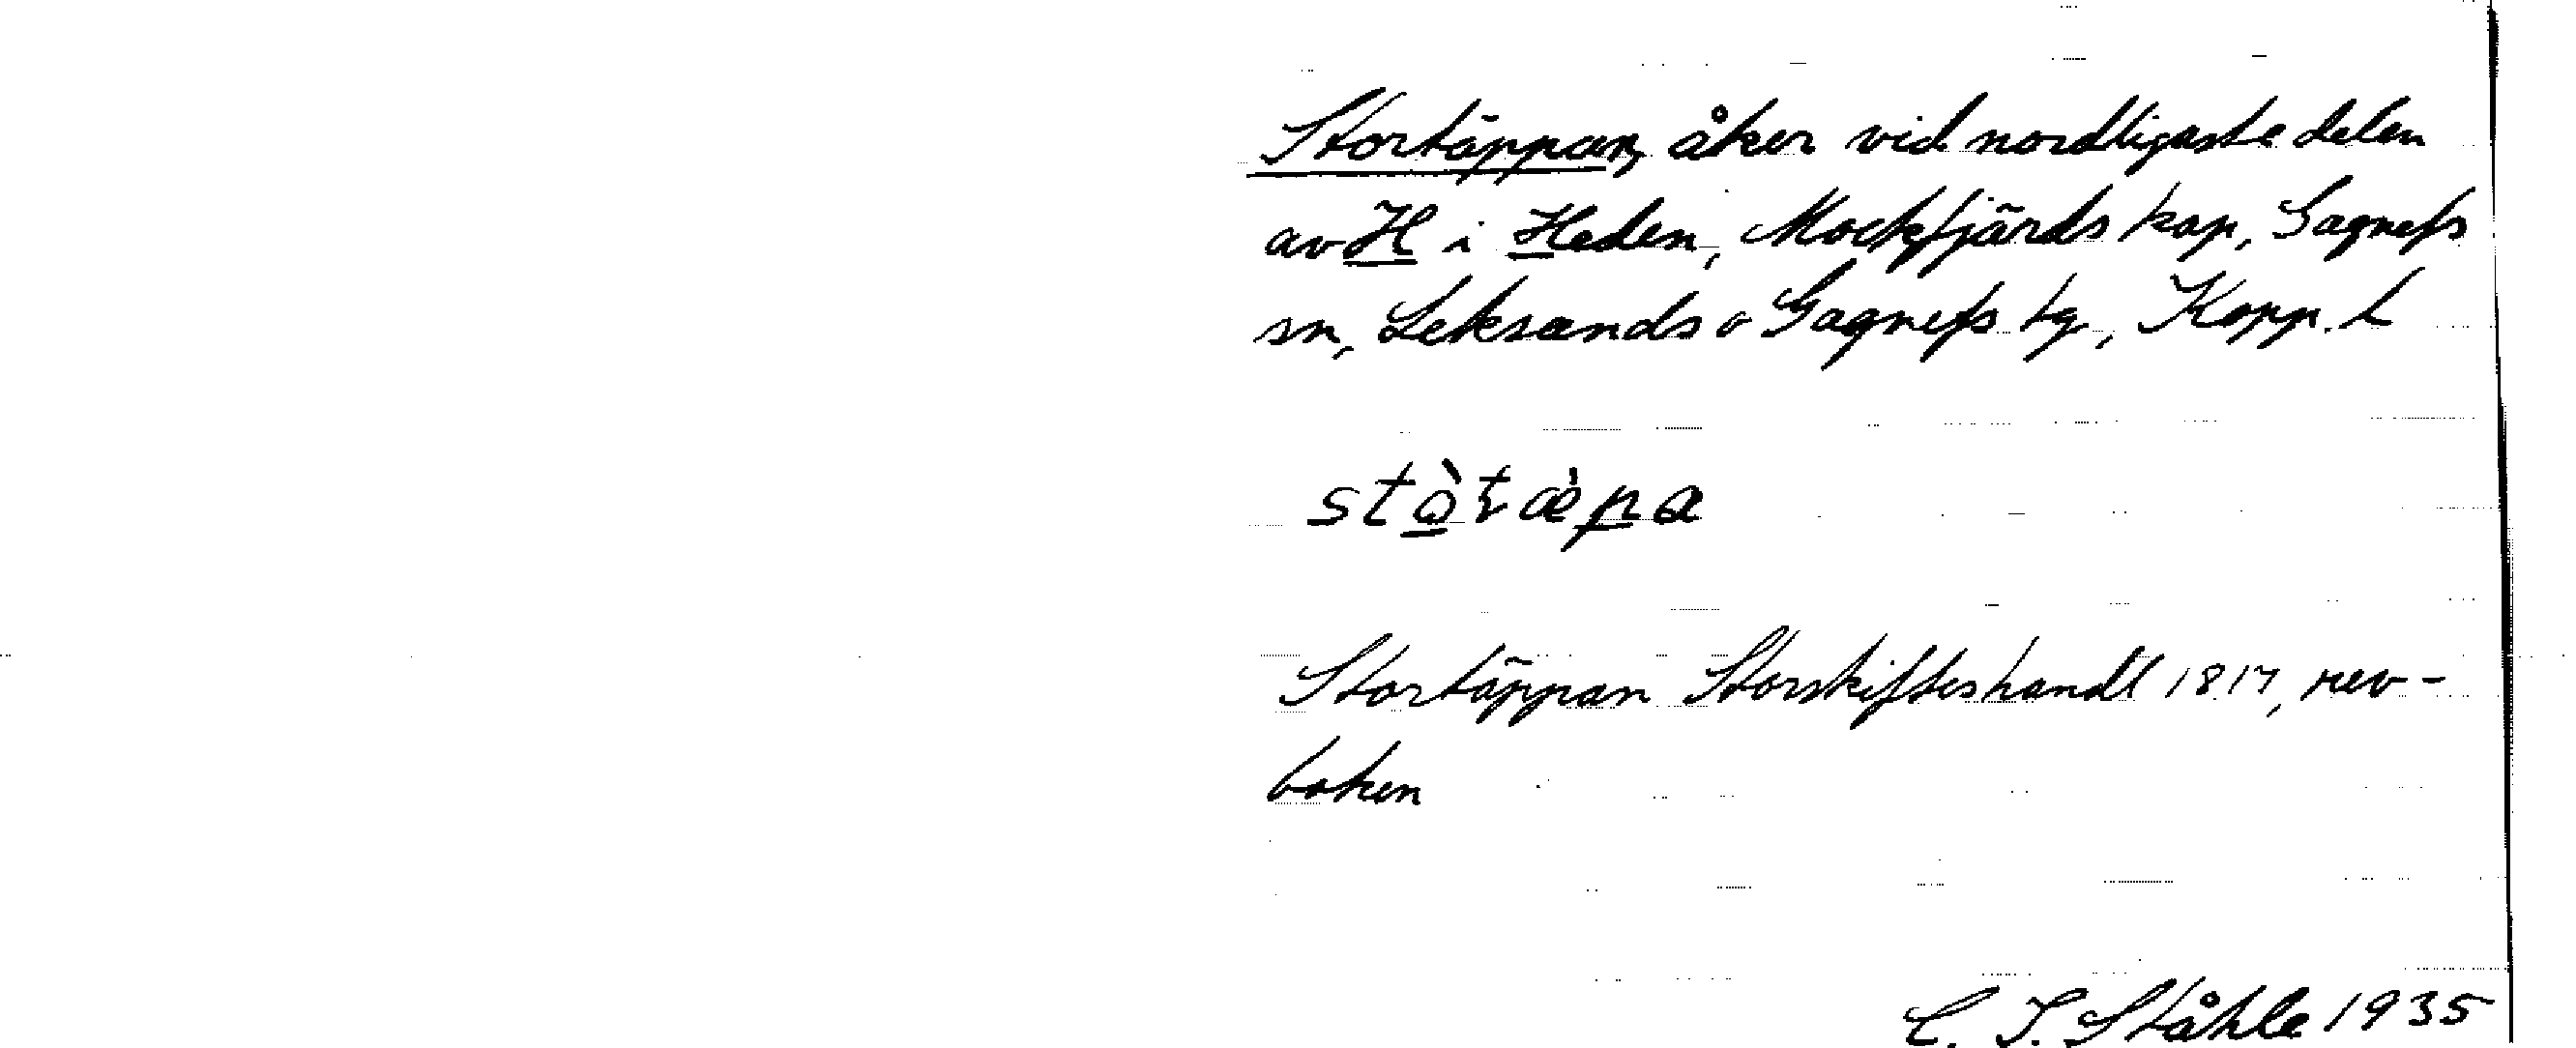 Stortäppan, åker vid nordligaste delen
av H i Heden, Mockfjärds kap, Gagnefs
sn, Leksands o Gagnefs tg, Kopp. L
stò̱ṭæ̀pa
Stortäppan Storskifteshandl 1817, rev-
boken
C. I. Ståhle 1935